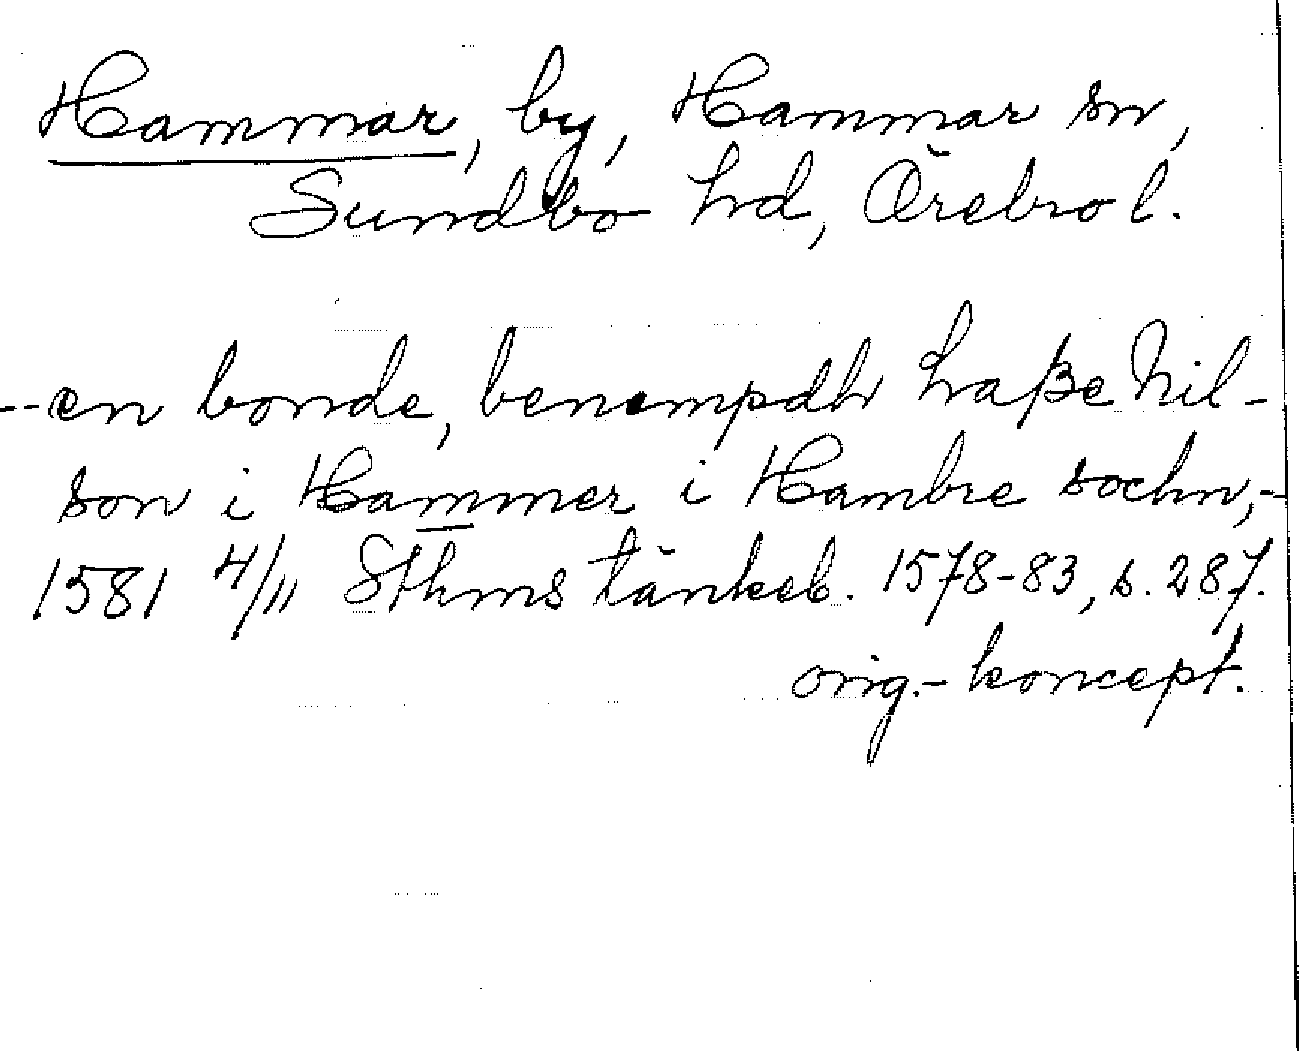 Hammar, by, Hammar sn,
Sundbo hd, Örebro l.
--en bonde, benempdh haße Nil-
son i Hammer i Hambre sochn,-
1581 4/11 Sthms tänkeb. 1578-83, s. 287.
orig.-koncept.